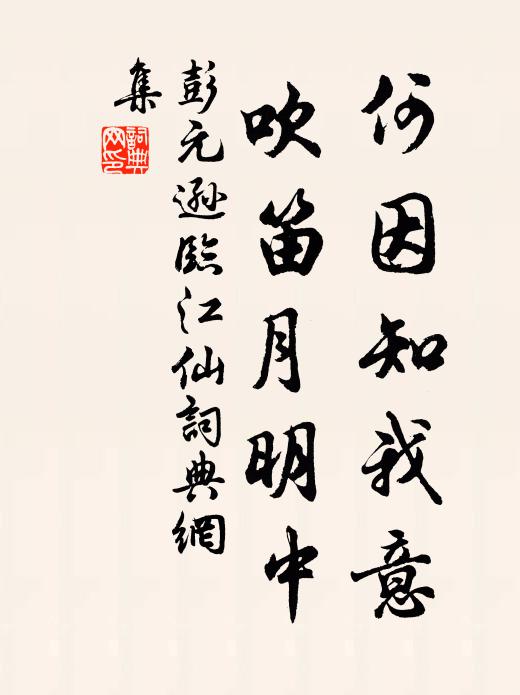 何因知我意
吹笛月明中
彭元遜臨江仙詞典網
集
詞典
网印